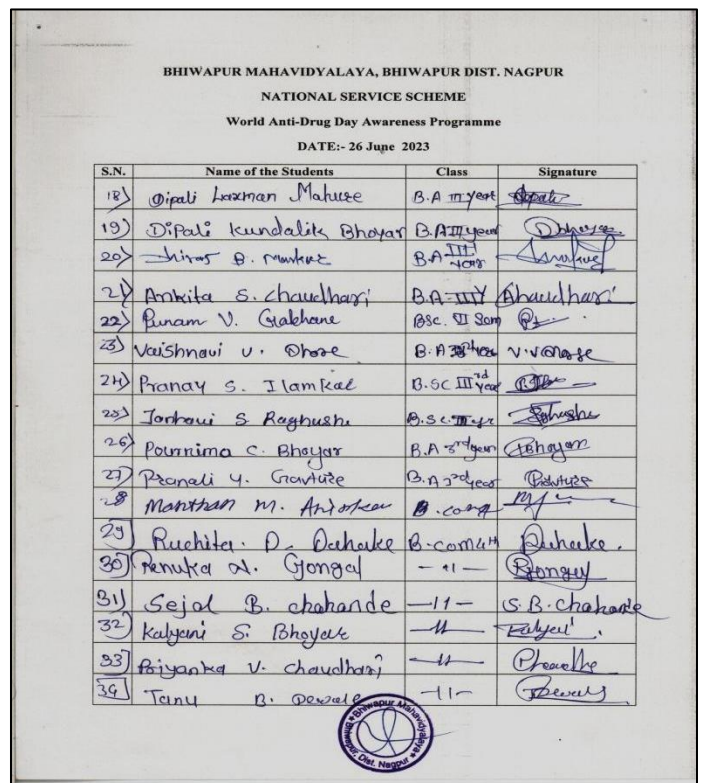 BHIWAPUR MAHAVIDYALAYA, BHIWAPUR DIST. NAGPUR
NATIONAL SERVICE SCHEME
World Anti-Drug Day Awareness Programme
DATE:- 26 June 2023
S.N. Name of the Students Class Signature
18) Dipali Laxman Mahure B.A III year
19) Dipali Kundalik Bhoyar B.A III year Dbhoyar
20) B. B.A III year
21) Ankita S. chaudhari B.A-III Y Ahaudhari
22) Punam V. Gakhane BSc. VI Sem
23) Vaishnavi U. Dhore B.A 3rd year
24) Pranay S. Ilamkar B.SC III rd year
25) S Raghushe B.Sc. III yr
26) Pournima C. Bhoyar B.A 3rd year Bhoyar
27) Pranali Y. Gavture B.A 3rd year
28 Manthan M. B.com
29) Ruchita. D. Dahake B-com 4th Dahake.
30) Renuka N. Gongal -11-
31) Sejal B. chahande -11- S.B. chahande
32) Kalyani S. Bhoyar -11- Kalyani.
33) Priyanka V. chaudhari -11-
34) Tanu B. Dewale -11-
Bhiwapur Mahavidyalaya
Bhiwapur, Dist. Nagpur